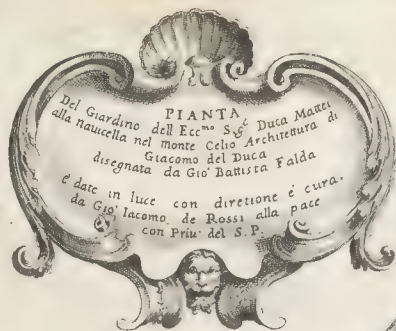 PIANTA
Del Giardino dell Ecc.mo Sig.e Duca Mattei
alla nauicella nel Monte Celio Architettura di
Giacomo del Duca
disegnata da Gio' Battista Falda
é date in luce con diretione é cura,
da Gio' Iacomo de Rossi alla pace
con Priu' del S.P.